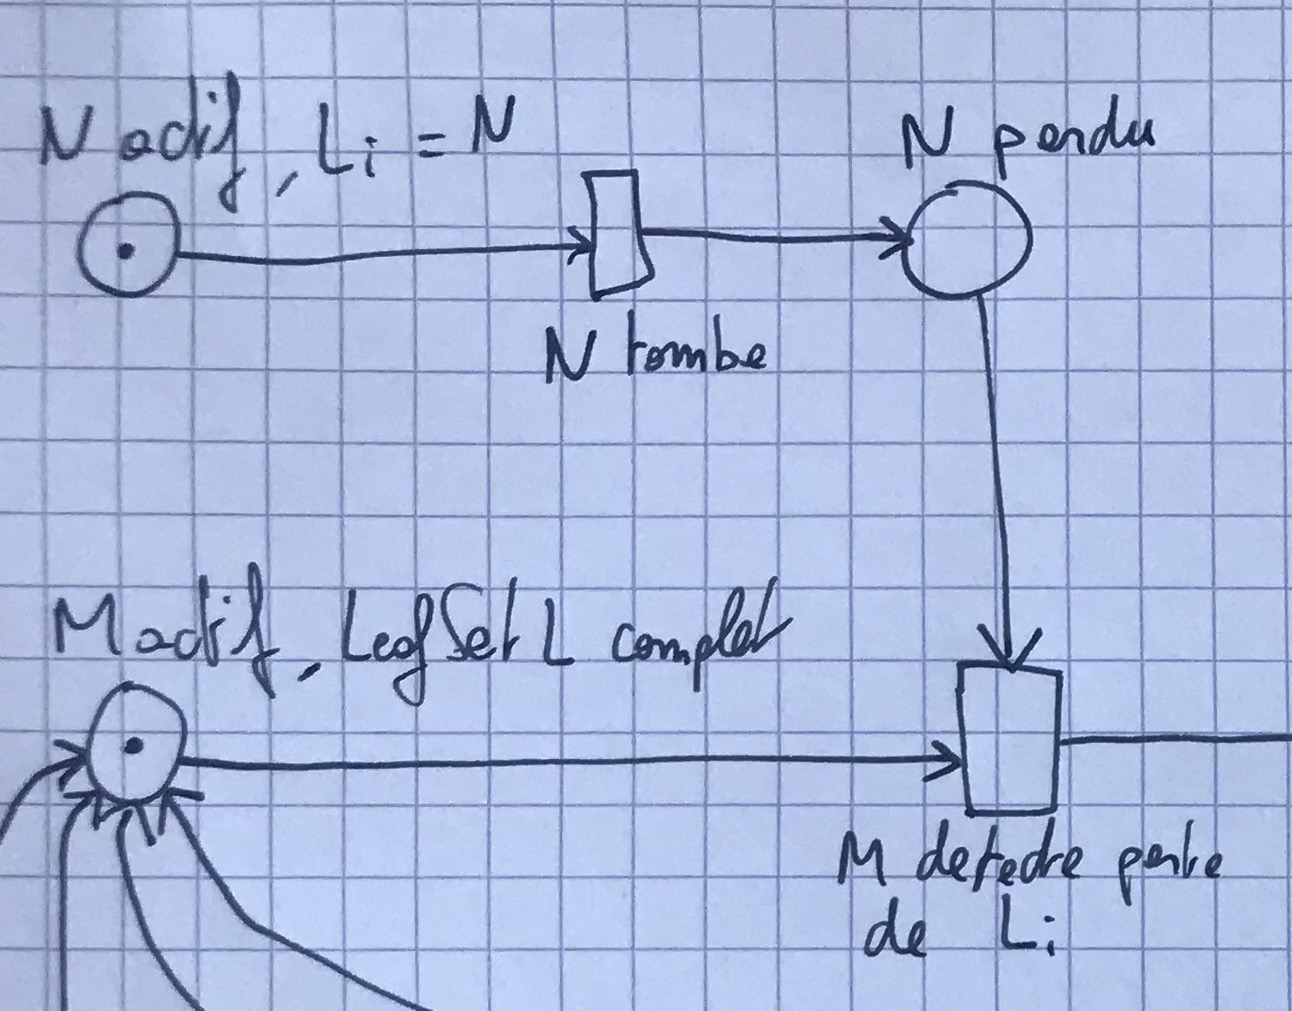 N actif, Li = N
N perdu
N tombe
M actif, LeafSet L complet
M detecte perte
de Li